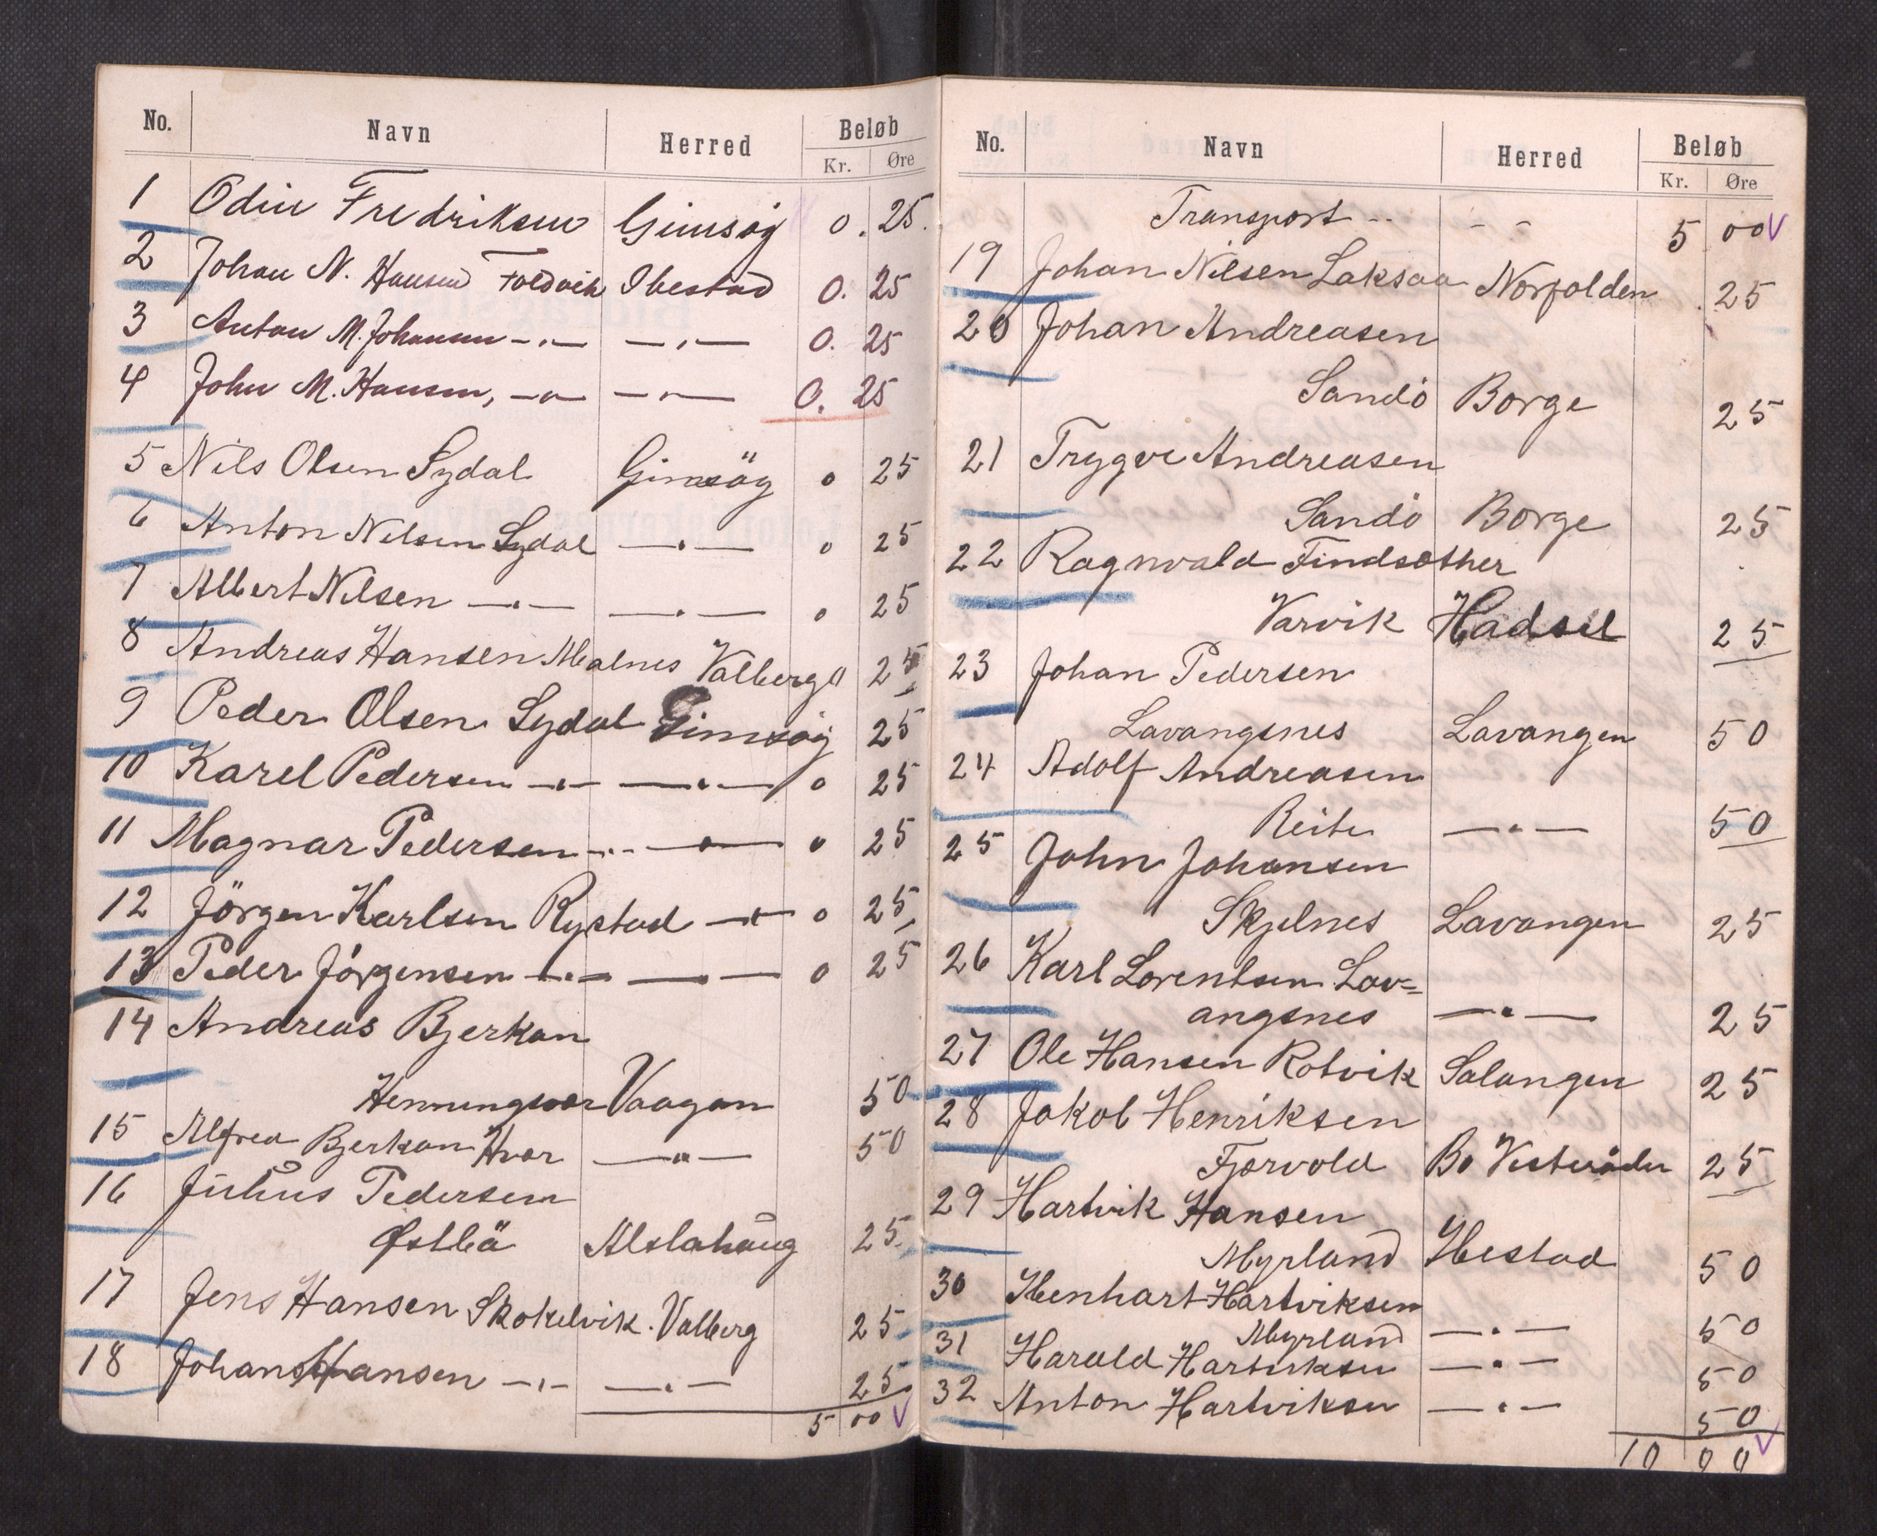 No. Navn Herred Beløb
Kr. Øre
1 Odin Fredriksen Gimsøy 0. 25.
2 Johan N. Hansen Foldvik Ibestad 0. 25
3 Anton M. Johansen -"- -"- 0. 25
4 John M. Hansen, -"- -"- 0. 25
5 Nils Olsen Sydal Gimsöy 0 25
6 Anton Nilsen Sydal -"- 0 25
7 Albert Nilsen -"- -"- 0 25
8 Andreas Hansen Malnes Valberg 0 25
9 Peder Olsen Sydal Gimsöy 25
10 Karel Pedersen -"- -"- 0 25
11 Magnar Pedersen -"- -"- 0 25
12 Jörgen Karlsen Rystad -"- 0 25
13 Peder Jörgensen -"- -"- 0 25
14 Andreas Bjerkan
Henningsvær Vaagan 50
15 Alfred Bjerkan Hvær -"- 50
16 Julius Pedersen
Østbö Alstahaug 25
17 Jens Hansen Skokelvik. Valberg 25
18 Johan Hansen -"- -"- 25
5 00 V
No. Navn Herred Beløb
Kr. Øre
Transport -- - - 5 00 V
19 Johan Nilsen Laksaa Norfolden 25
20 Johan Andreasen
Sandö Borge 25
21 Trygve Andreasen
Sandö Borge 25
22 Ragnvald Findsæther
Varvik Hadsel 25
23 Johan Pedersen
Lavangsnes Lavangen 50
24 Adolf Andreasen
Reite -"- 50
25 John Johansen
Skjelnes Lavangen 25
26 Karl Lorentsen Lav=
angsnes -"- 25
27 Ole Hansen Rotvik Salangen 25
28 Jakob Henriksen
Fjærvold Bö Vesterålen 25
29 Hartvik Hansen
Myrland Ibestad 50
30 Ibenhart Hartviksen
Myrland -"- 50
31 Harald Hartviksen -"- 50
32 Anton Hartviksen -"- 50
10 00 V